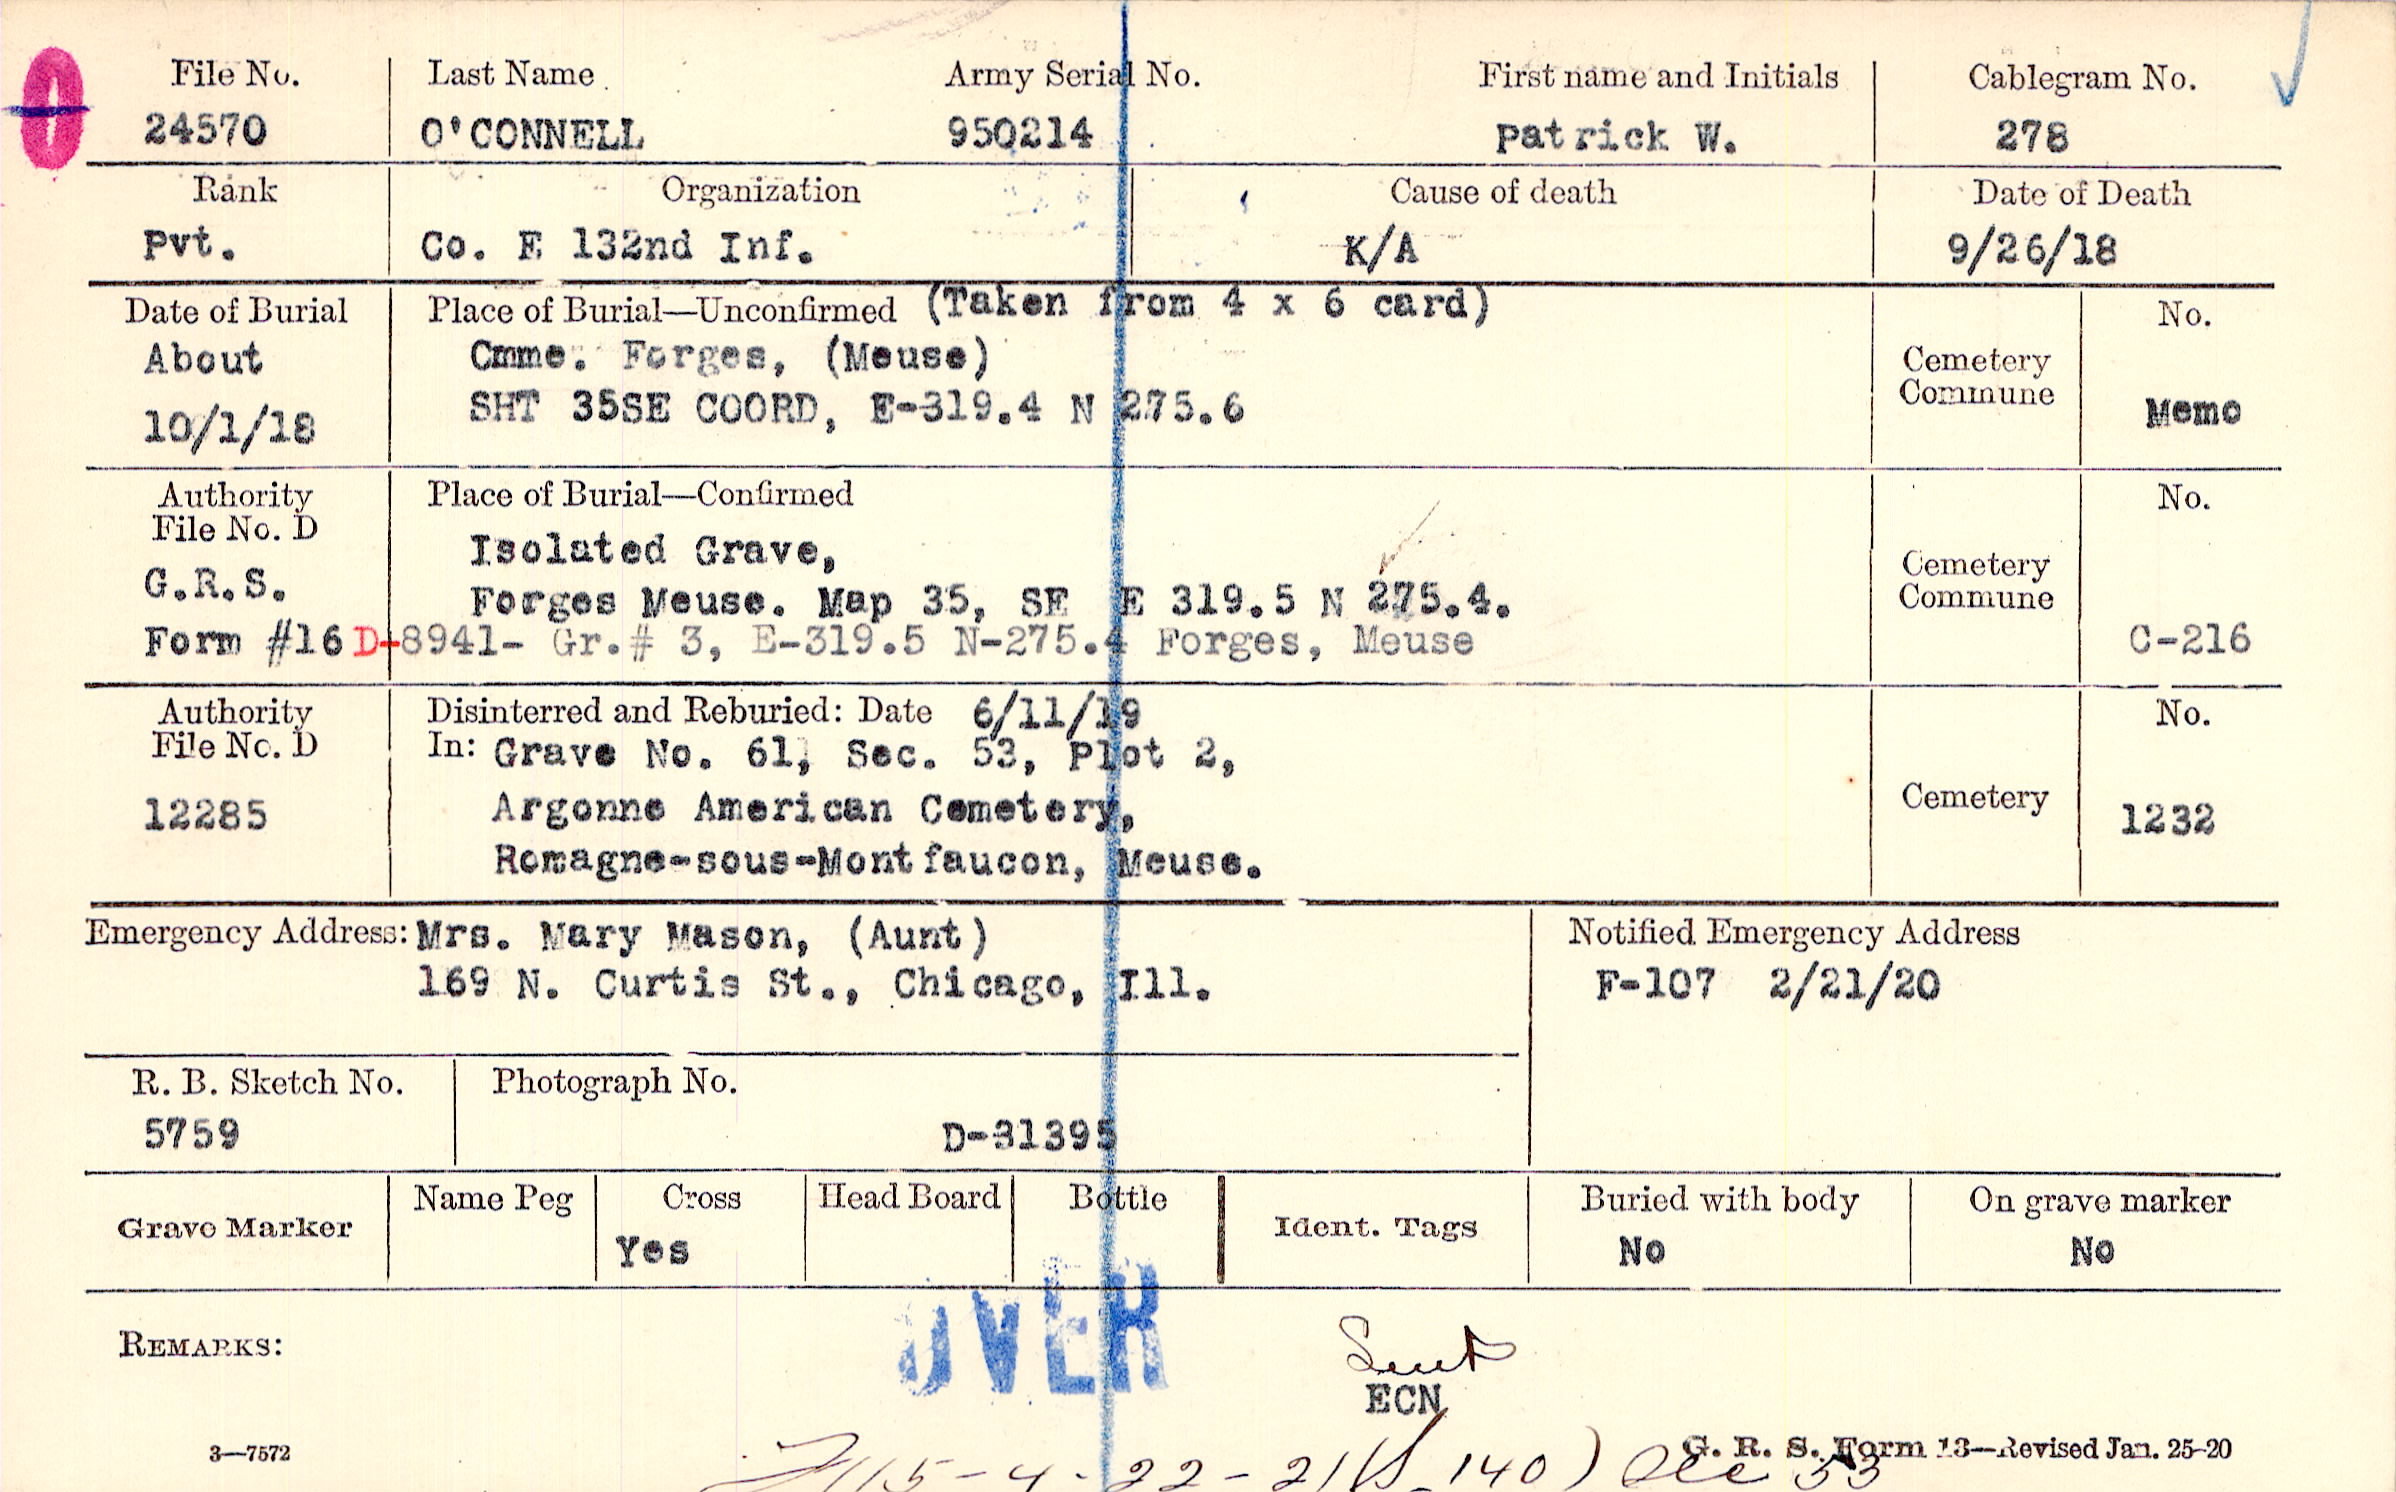 File No. Last Name Army Serial No. First name and Initials Cablegram No.
24570 O'CONNELL 950214 Patrick W. 278
Rank Organization Cause of death Date of Death
Pvt. Co. E 132nd Inf. K/A 9/26/18
Date of Burial Place of Burial—Unconfirmed (Taken from 4 x 6 card) No.
About Cmme. Forges, (Meuse) Cemetery
Commune
10/1/18 SHT 35SE COORD, E-319.4 N 275.6 Memo
Authority Place of Burial—Confirmed No.
File No. D
G.R.S. Isolated Grave, Cemetery
Commune
Forges Meuse. Map 35, SE E 319.5 N 275.4.
Form #16 D-8941- Gr.# 3, E-319.5 N-275.4 Forges, Meuse C-216
Authority Disinterred and Reburied: Date 6/11/19 No.
File No. D In: Grave No. 61, Sec. 53, Plot 2,
12285 Argonne American Cemetery, Cemetery 1232
Romagne-sous-Montfaucon, Meuse.
Emergency Address: Mrs. Mary Mason, (Aunt) Notified Emergency Address
169 N. Curtis St., Chicago, Ill. F-107 2/21/20
R. B. Sketch No. Photograph No.
5759 D-31395
Grave Marker Name Peg Cross Head Board Bottle Ident. Tags Buried with body On grave marker
Yes No No
OVER
REMARKS: Sent
ECN
3—7572 G. R. S. Form 13—Revised Jan. 25-20
15-4-22-21 140) 53